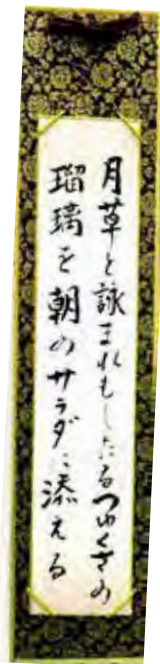 月草と詠まれもしたるつゆくさの
瑠璃を朝のサラダに添える